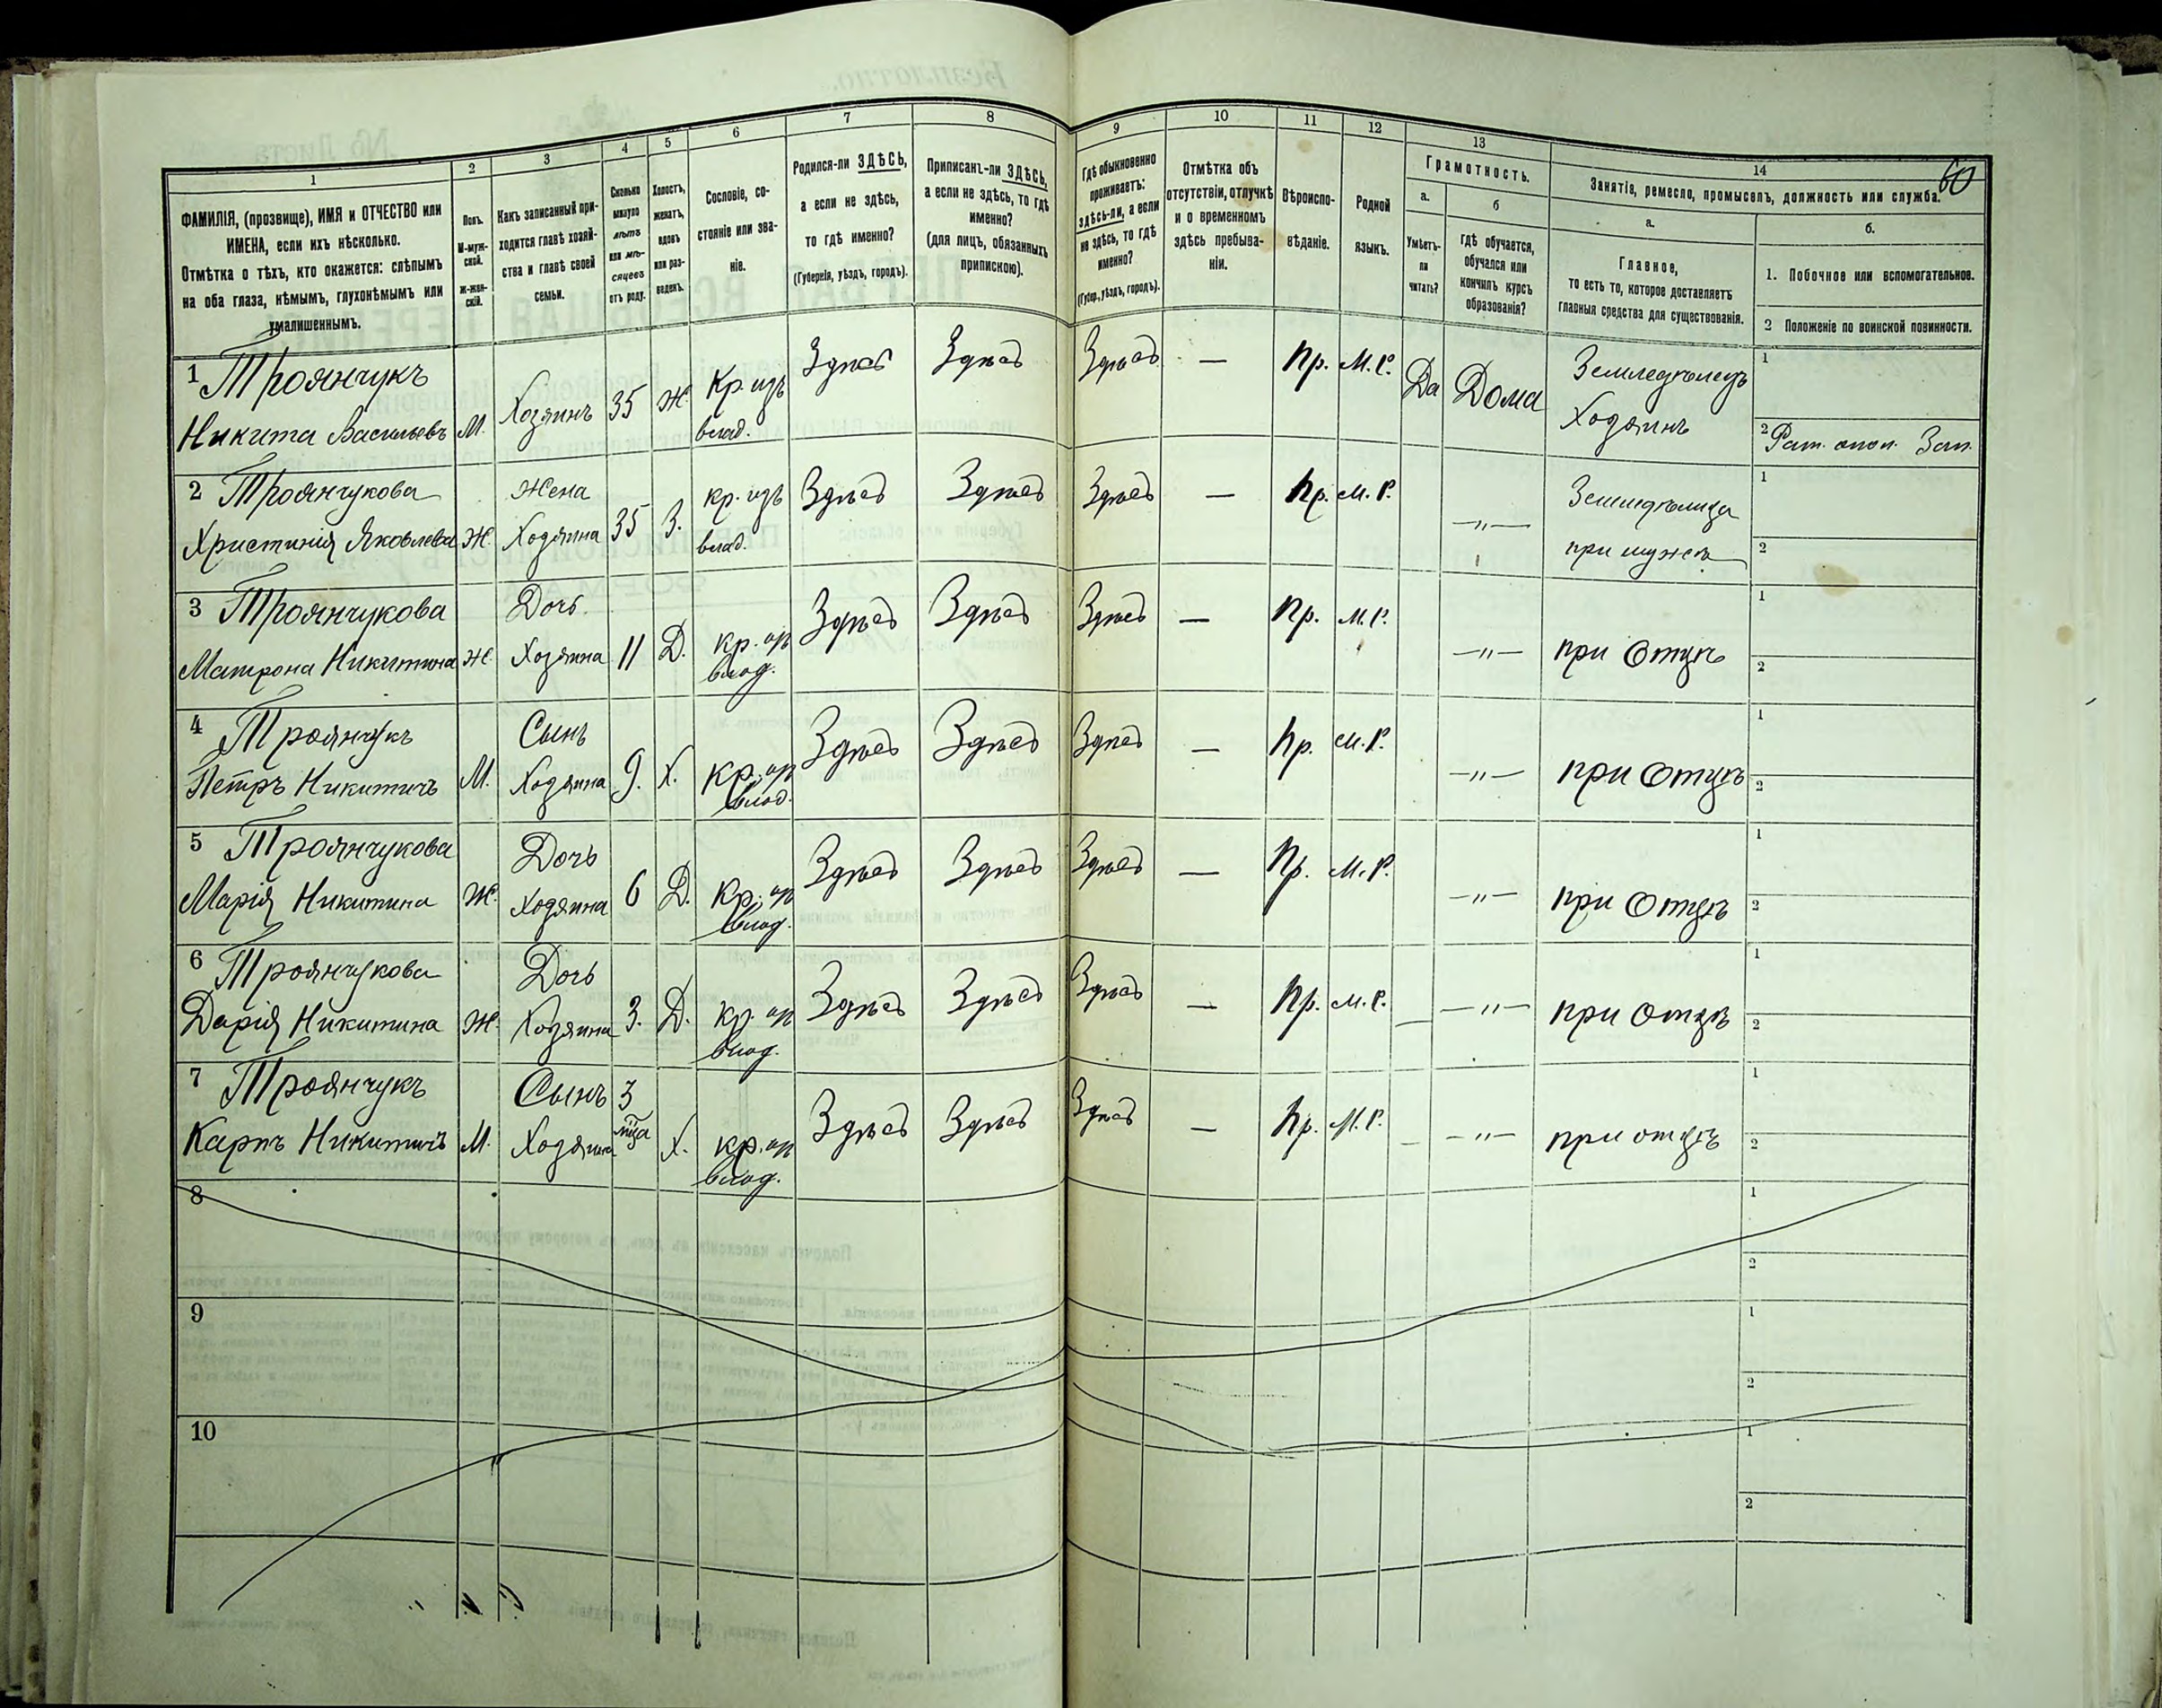 60
1 2 3 4 5 6 7 8 9 10 11 12 13 14
ФАМИЛІЯ, (прозвище), ИМЯ и ОТЧЕСТВО или
ИМЕНА, если ихъ нѣсколько.
Отмѣтка о тѣхъ, кто окажется: слѣпымъ
на оба глаза, нѣмымъ, глухонѣмымъ или
умалишеннымъ.
Полъ.
М-муж-
ской.
ж-жен-
скій.
Какъ записанный при-
ходится главѣ хозяй-
ства и главѣ своей
семьи.
Сколько
минуло
лѣтъ
или мѣ-
сяцевъ
отъ роду.
Холостъ,
женатъ,
вдовъ
или раз-
веденъ.
Сословіе, со-
стояніе или зва-
ніе.
Родился-ли ЗДѢСЬ,
а если не здѣсь,
то гдѣ именно?
(Губернія, уѣздъ, городъ).
Приписанъ-ли ЗДѢСЬ,
а если не здѣсь, то гдѣ
именно?
(для лицъ, обязанныхъ
припискою).
Гдѣ обыкновенно
проживаетъ:
здѣсь-ли, а если
не здѣсь, то гдѣ
именно?
(Губер., уѣздъ, городъ).
Отмѣтка объ
отсутствіи, отлучкѣ
и о временномъ
здѣсь пребыва-
ніи.
Вѣроиспо-
вѣданіе.
Родной
языкъ.
Грамотность.
а.
Умѣетъ-
ли
читать?
б
гдѣ обучается,
обучался или
кончилъ курсъ
образованія?
Занятіе, ремесло, промыселъ, должность или служба.
а.
Главное,
то есть то, которое доставляетъ
главныя средства для существованія.
б.
1. Побочное или вспомогательное.
2 Положеніе по воинской повинности.
1 Троянчукъ Здѣсь Здѣсь Здѣсь — Пр. М.Р. Да Дома Земледѣлецъ 1
Никита Васильевъ М. Хозяинъ 35 Ж. Кр. изъ Хозяинъ
влад. 2 Рат. опол. Зап.
2 Троянчукова Жена кр. изъ Здѣсь Здѣсь Здѣсь — Пр. М.Р. 1
Христинія Яковлева Ж. Хозяина 35 З. влад. —"— при мужѣ 2
3 Троянчукова Дочь Здѣсь Здѣсь Здѣсь — Пр. М.Р. 1
Матрона Никитина Ж. Хозяина 11 Д. кр. —"— при Отцѣ 2
влад.
4 Троянчукъ Сынъ Здѣсь Здѣсь Здѣсь — Пр. М.Р. 1
Петръ Никитичъ М. Хозяина 9. Х. кр. —"— при Отцѣ 2
влад.
5 Троянчукова Дочь Здѣсь Здѣсь Здѣсь — Пр. М.Р. 1
Марія Никитина Ж. Хозяина 6 Д. Кр. —"— при Отцѣ 2
влад.
6 Троянчукова Дочь Здѣсь Здѣсь Здѣсь — Пр. М.Р. 1
Дарія Никитина Ж. Хозяина 3. Д. кр. — —"— при Отцѣ 2
влад.
7 Троянчукъ Сынъ 3 Здѣсь Здѣсь Здѣсь — Пр. М.Р. 1
Карпъ Никитичъ М. Хозяина мца Х. кр. — —"— при отцѣ 2
влад.
8 1
2
9 1
2
10 1
2